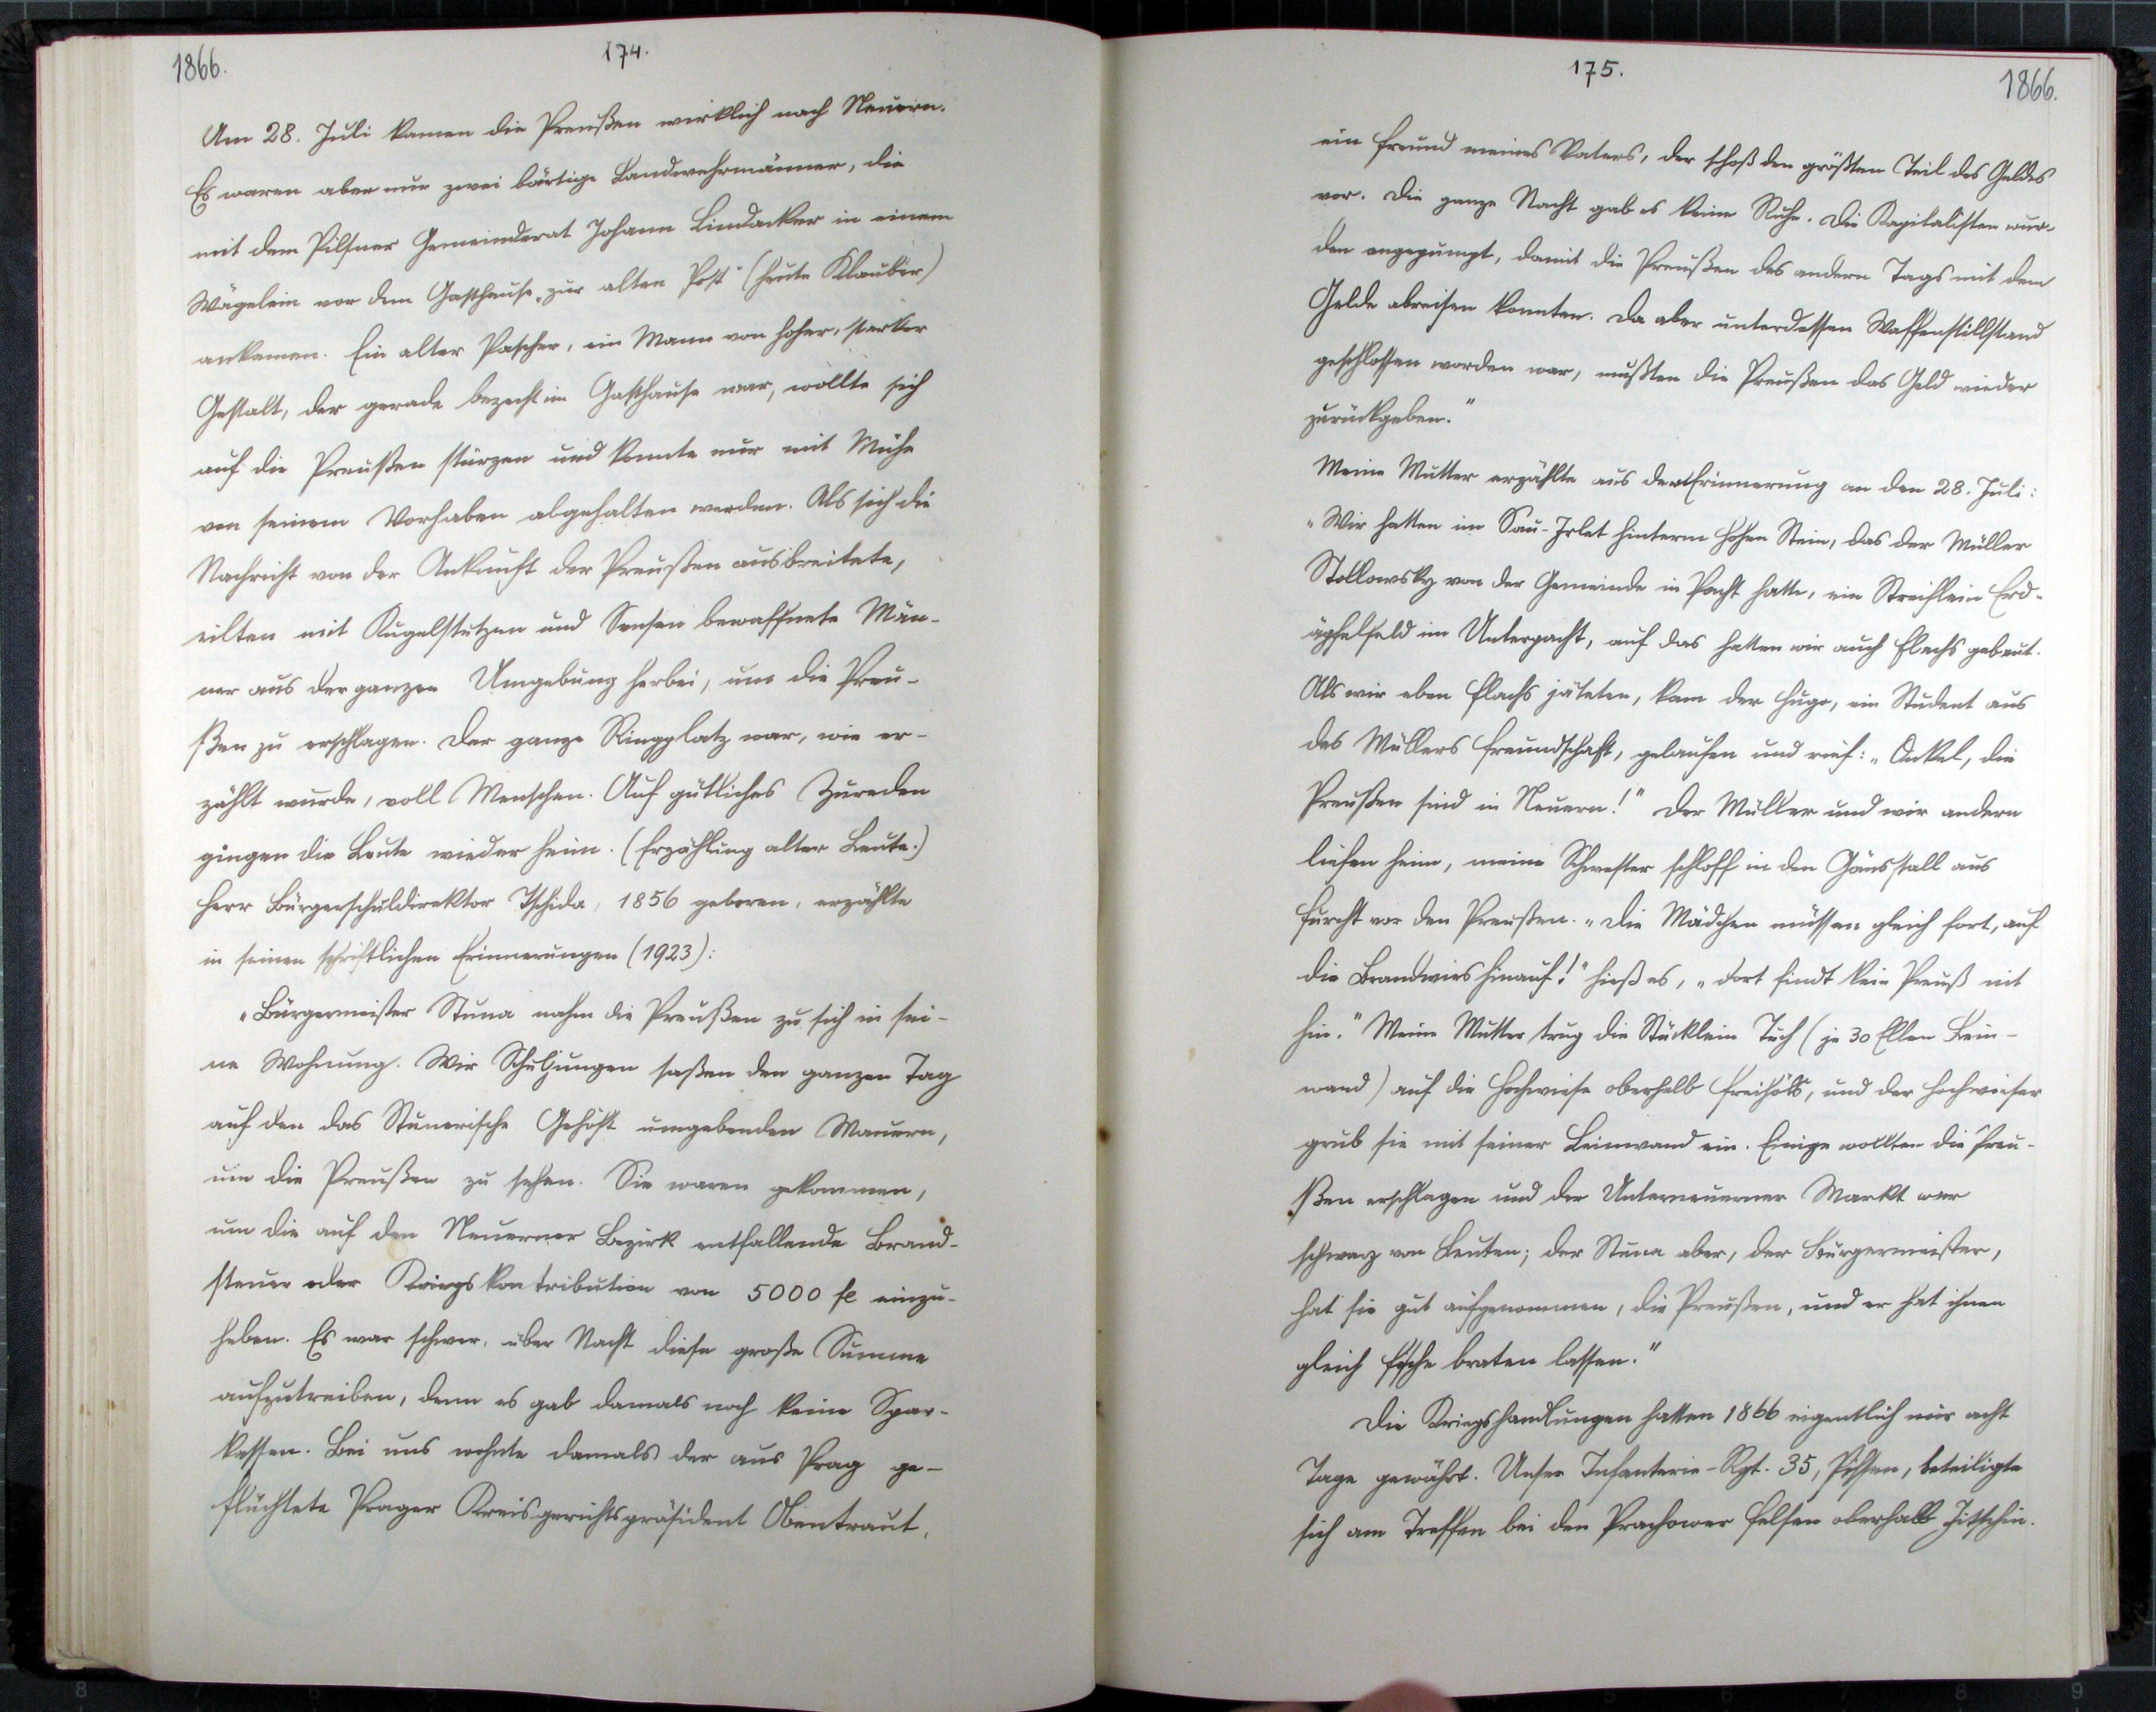 1866.
174.
Am 28. Juli kamen die Preußen wirklich nach Neuern.
Es waren aber nur zwei bärtige Landwehrmänner, die
mit dem Pilsner Gemeinderat Johann Lindacker in einem
Wägelein vor dem Gasthause „zur alten Post" (heute Klauber)
ankamen. Ein alter Pascher, ein Mann von hoher, starker
Gestalt, der gerade bezecht im Gasthause war, wollte sich
auf die Preußen stürzen und konnte nur mit Mühe
von seinem Vorhaben abgehalten werden. Als sich die
Nachricht von der Ankunft der Preußen ausbreitete,
eilten mit Kugelstutzen und Sensen bewaffnete Män-
ner aus der ganzen Umgebung herbei, um die Preu-
ßen zu erschlagen. Der ganze Ringplatz war, wie er-
zählt wurde, voll Menschen. Auf gütliches Zureden
gingen die Leute wieder heim. (Erzählung alter Leute.)
Herr Bürgerschuldirektor Tschida, 1856 geboren, erzählte
in seinen schriftlichen Erinnerungen (1923):
„Bürgermeister Stuna nahm die Preußen zu sich in sei-
ne Wohnung. Wir Schuljungen saßen den ganzen Tag
auf den das Stunerische Gehöft umgebenden Mauern,
um die Preußen zu sehen. Sie waren gekommen,
um die auf den Neuerner Bezirk entfallende Brand-
steuer oder Kriegskontribution von 5000 fl einzu-
heben. Es war schwer, über Nacht diese große Summe
aufzutreiben, denn es gab damals noch keine Spar-
kassen. Bei uns wohnte damals der aus Prag ge-
flüchtete Prager Kreisgerichtspräsident Obentraut,
175.
1866.
ein Freund meines Vaters, der schoß den größten Teil des Geldes
vor. Die ganze Nacht gab es keine Ruhe. Die Kapitalisten wur-
den angepumpt, damit die Preußen des andern Tags mit dem
Gelde abreisen konnten. Da aber unterdessen Waffenstillstand
geschlossen worden war, mußten die Preußen das Geld wieder
zurückgeben."
Meine Mutter erzählte aus der Erinnerung an den 28. Juli:
„Wir hatten im Sau-Irlet hinterm hohen Stein, das der Müller
Stollowsky von der Gemeinde in Pacht hatte, ein Streiflein Erd-
äpfelfeld im Unterpacht, auf das hatten wir auch Flachs gebaut.
Als wir eben Flachs jäteten, kam der Hugo, ein Student aus
des Müllers Freundschaft, gelaufen und rief: „Onkel, die
Preußen sind in Neuern!" Der Müller und wir andern
liefen heim, meine Schwester schloff in den Gänsstall aus
Furcht vor den Preußen. „Die Mädchen müssen gleich fort, auf
die Brandwies hinauf!" hieß es, „dort findt kein Preuß nit
hin." Meine Mutter trug die Stücklein Tuch (je 30 Ellen Lein-
wand) auf die Hochwiese oberhalb Freihöls, und der Hochwieser
grub sie mit seiner Leinwand ein. Einige wollten die Preu-
ßen erschlagen und der Unterneuerner Markt war
schwarz von Leuten; der Stuna aber, der Bürgermeister,
hat sie gut aufgenommen, die Preußen, und er hat ihnen
gleich Fische braten lassen."
Die Kriegshandlungen hatten 1866 eigentlich nur acht
Tage gewährt. Unser Infanterie-Rgt. 35, Pilsen, beteiligte
sich am Treffen bei den Prachower Felsen oberhalb Jitschin.